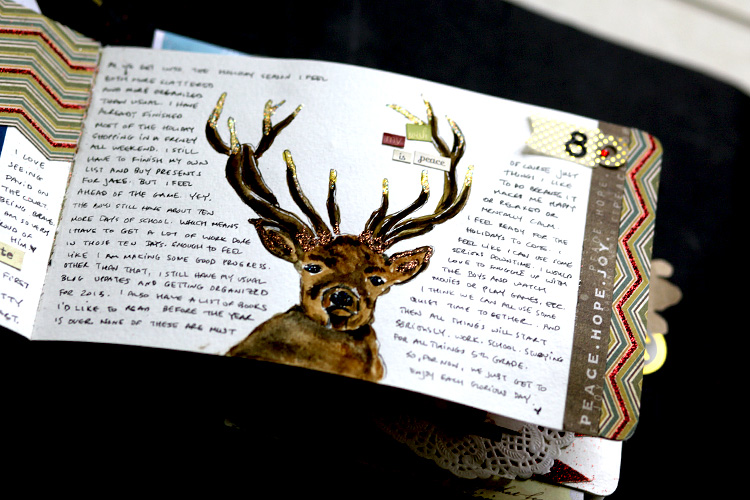 I LOVE
SEEING
DAVID ON
THE COURT.
BEING BRAVE.
I AM SO VERY
PROUD OF
HIM
FIRST
AS WE GET INTO THE HOLIDAY SEASON I FEEL
BOTH MORE SCATTERED
AND MORE ORGANIZED
THAN USUAL. I HAVE
ALREADY FINISHED
MOST OF THE HOLIDAY
SHOPPING IN A FRENZY
ALL WEEKEND. I STILL
HAVE TO FINISH MY OWN
LIST AND BUY PRESENTS
FOR JAKE. BUT I FEEL
AHEAD OF THE GAME. YEY.
THE BOYS STILL HAVE ABOUT TEN
MORE DAYS OF SCHOOL. WHICH MEANS
I HAVE TO GET A LOT OF WORK DONE
IN THOSE TEN DAYS. ENOUGH TO FEEL
LIKE I AM MAKING SOME GOOD PROGRESS.
OTHER THAN THAT, I STILL HAVE MY USUAL
BLOG UPDATES AND GETTING ORGANIZED
FOR 2013. I ALSO HAVE A LIST OF BOOKS
I'D LIKE TO READ BEFORE THE YEAR
IS OVER. NONE OF THESE ARE MUST
my
is peace
OF COURSE JUST
THINGS I LIKE
TO DO BECAUSE IT
MAKES ME HAPPY
OR RELAXED OR
MENTALLY CALM.
I FEEL READY FOR THE
HOLIDAYS TO COME. I
FEEL LIKE I CAN USE SOME
SERIOUS DOWNTIME. I WOULD
LOVE TO SNUGGLE UP WITH
THE BOYS AND WATCH
MOVIES OR PLAY GAMES, ETC.
I THINK WE CAN ALL USE SOME
QUIET TIME TOGETHER. AND
THEN ALL THINGS WILL START
SERIOUSLY. WORK. SCHOOL. STUDYING
FOR ALL THINGS 5TH GRADE.
SO, FOR NOW, WE JUST GET TO
ENJOY EACH GLORIOUS DAY.
8
PEACE.HOPE.JOY